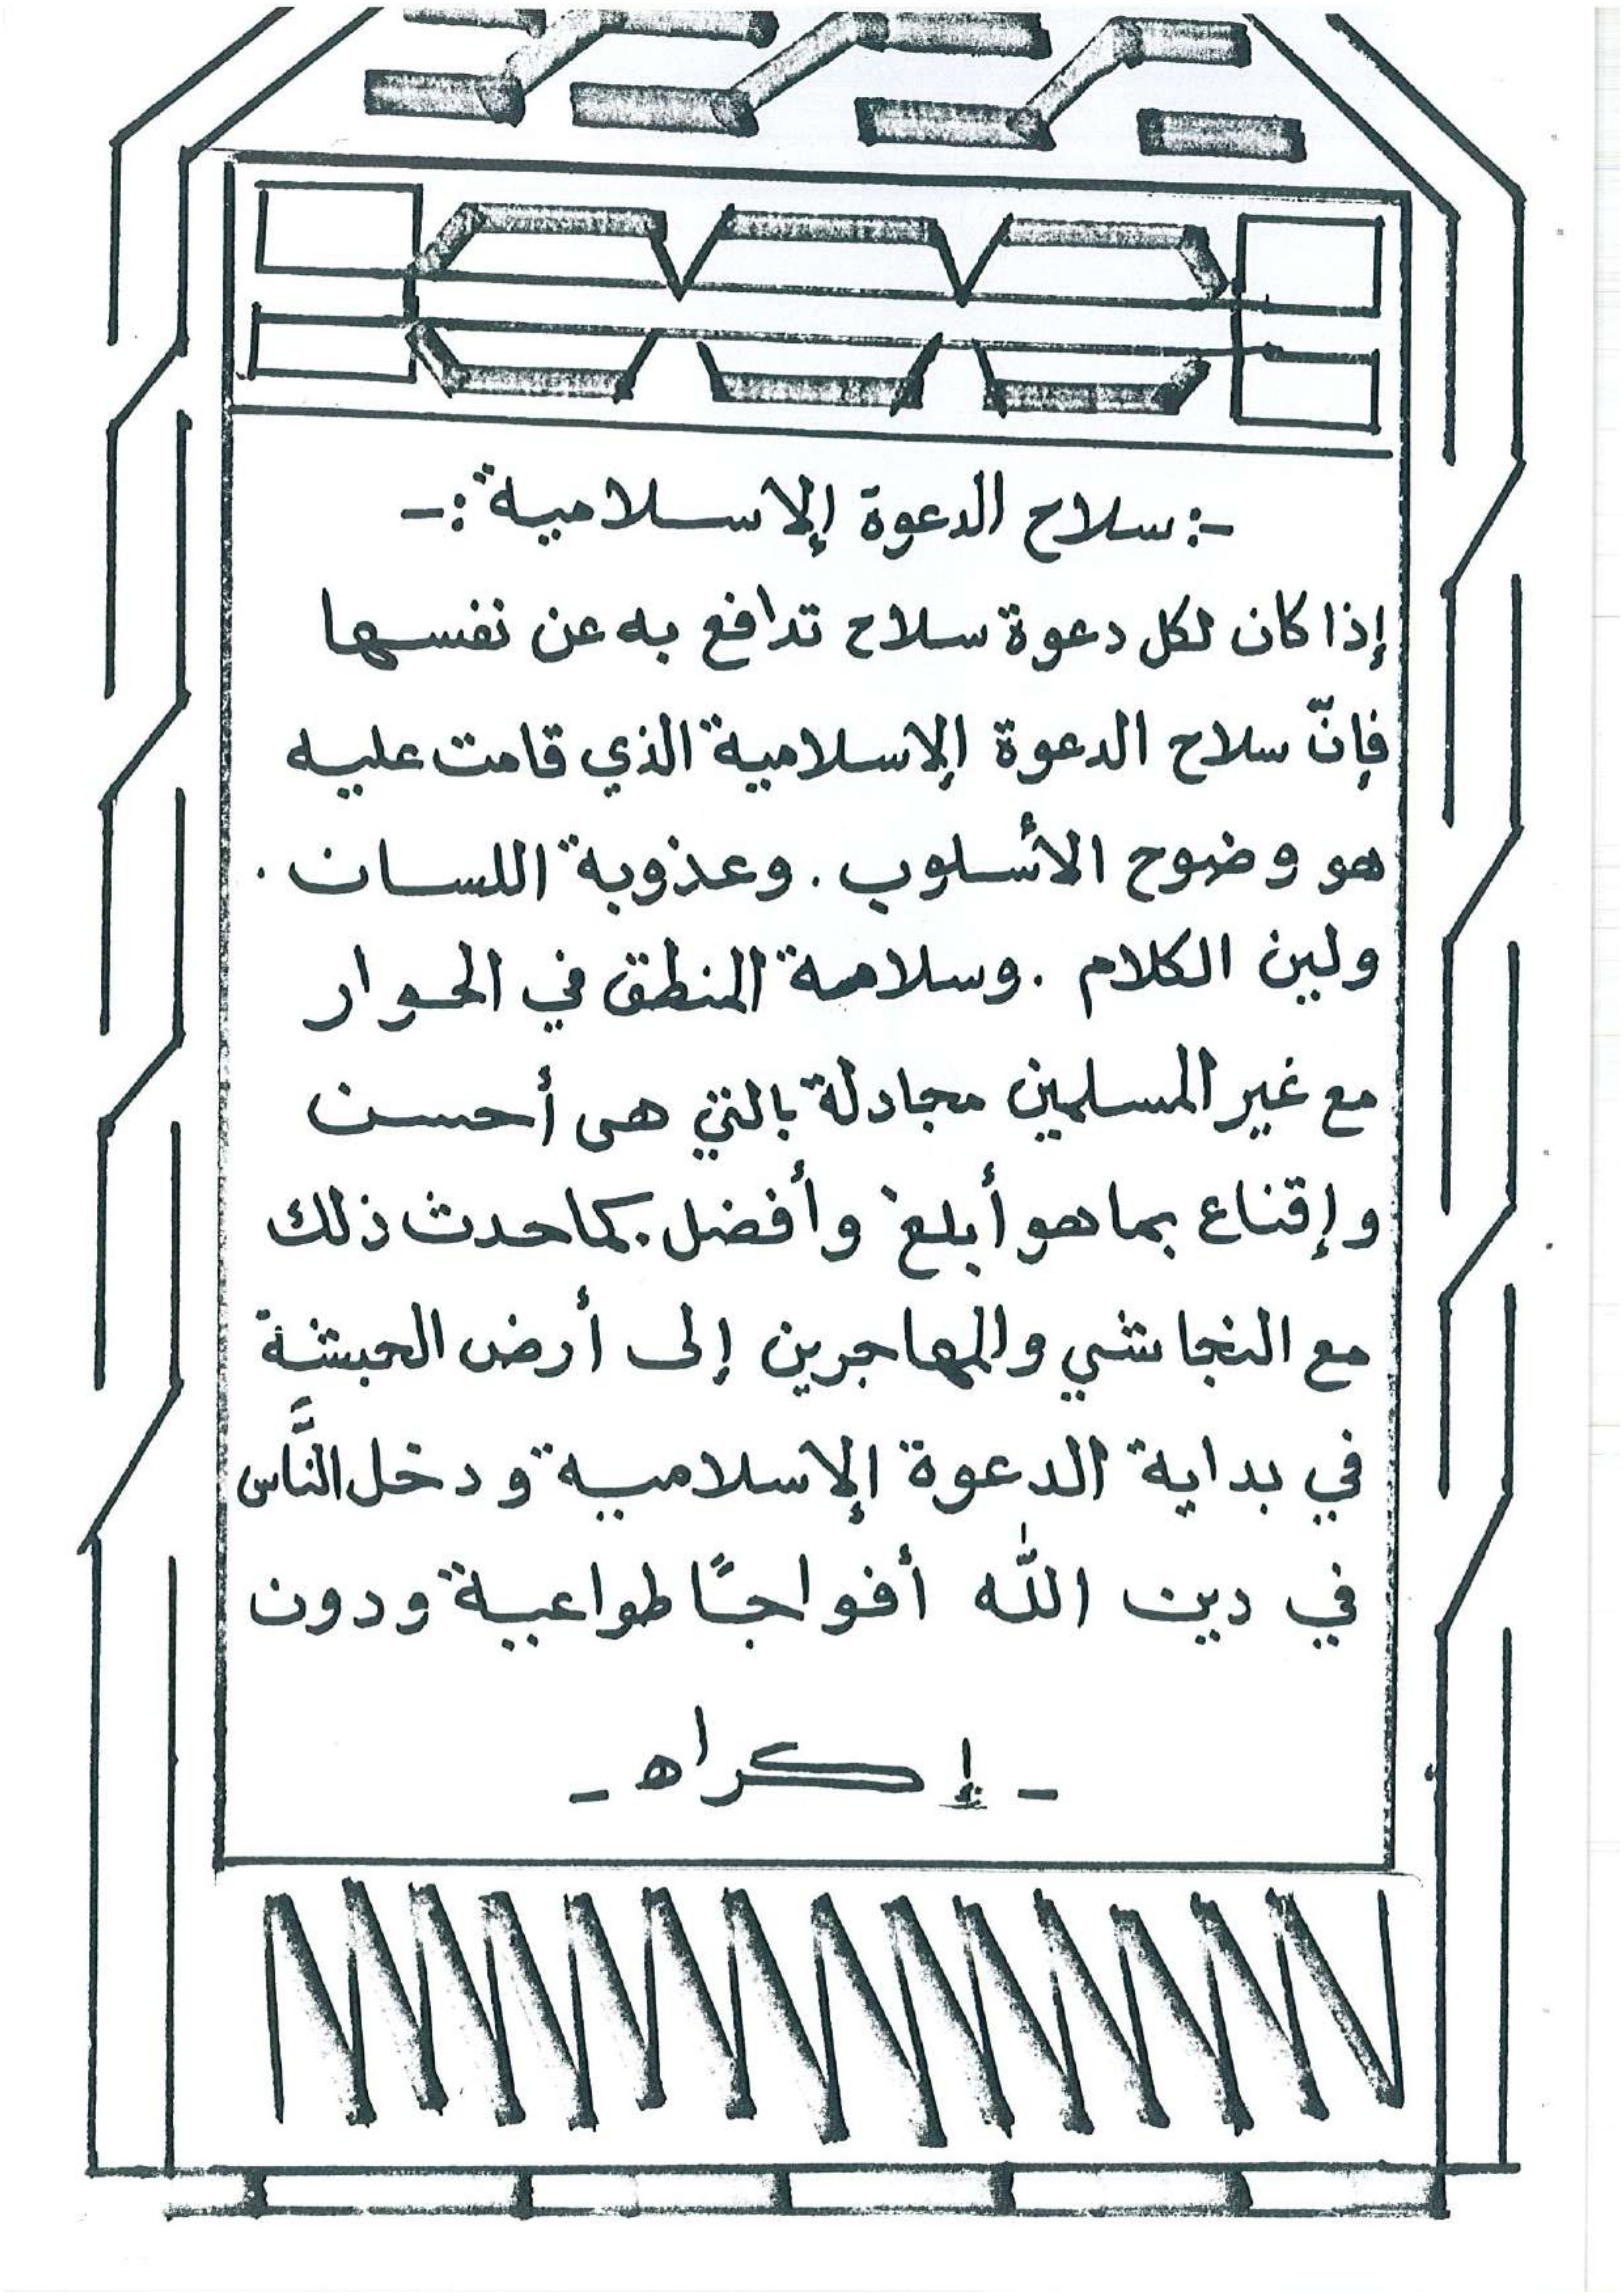 -: سلاح الدعوة الإسلامية :-
إذا كان لكل دعوة سلاح تدافع به عن نفسها
فإنّ سلاح الدعوة الإسلامية الذي قامت عليه
هو وضوح الأسلوب . وعذوبة اللسان .
ولين الكلام . وسلامة المنطق في الحوار
مع غير المسلمين مجادلة بالتي هى أحسن
وإقناع بما هو أبلغ وأفضل . كما حدث ذلك
مع النجاشي والمهاجرين إلى أرض الحبشة
في بداية الدعوة الإسلامية ودخل النَّاس
في دين اللّٰه أفواجًا طواعية ودون
- إكراه -